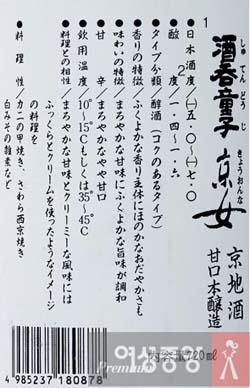 1
酒呑童子
しゅてんどうじ
京女
きょうおんな
京地酒
甘口本醸造
日本酒度 ㈠五・〇~㈠七・〇
酸度 一・四~一・六
タイプ分類 醇酒(コクのあるタイプ)
香りの特徴 ふくよかな香り主体にほのかなおだやかさも
味わいの特徴 まろやかな甘味にふくよかな旨味が調和
甘辛 まろやかなやや甘口
飲用温度 10°~15℃もしくは35°~45℃
料理との相性 まろやかな甘味とクリーミーな風味には
ふっくらとクリームを使ったようなイメージ
の料理を
料理性 カニの甲焼き、さわら西京焼き
白みその雑煮など
内容量720ml
Premium
여성중앙
4 985237 180878